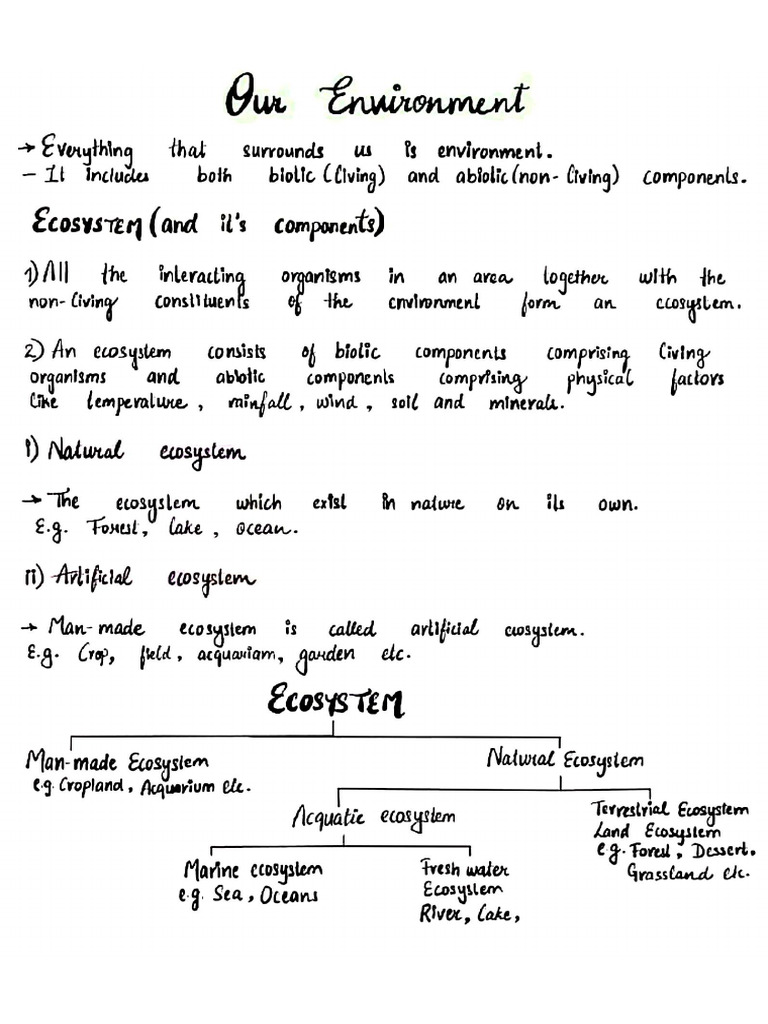 Our Environment
→ Everything that surrounds us is environment.
– It includes both biotic (living) and abiotic (non-living) components.
ECOSYSTEM (and it's components)
1) All the interacting organisms in an area together with the
non-living constituents of the environment form an ecosystem.
2) An ecosystem consists of biotic components comprising living
organisms and abiotic components comprising physical factors
like temperature, rainfall, wind, soil and minerals.
i) Natural ecosystem
→ The ecosystem which exist in nature on its own.
E.g. Forest, lake, ocean.
ii) Artificial ecosystem
→ Man-made ecosystem is called artificial ecosystem.
E.g. Crop, field, acquariam, garden etc.
ECOSYSTEM
Man-made Ecosystem
e.g. Cropland, Acquarium etc.
Natural Ecosystem
Acquatic ecosystem
Terrestrial Ecosystem
Land Ecosystem
e.g. Forest, Dessert,
Grassland etc.
Marine ecosystem
e.g. Sea, Oceans
Fresh water
Ecosystem
River, Lake,